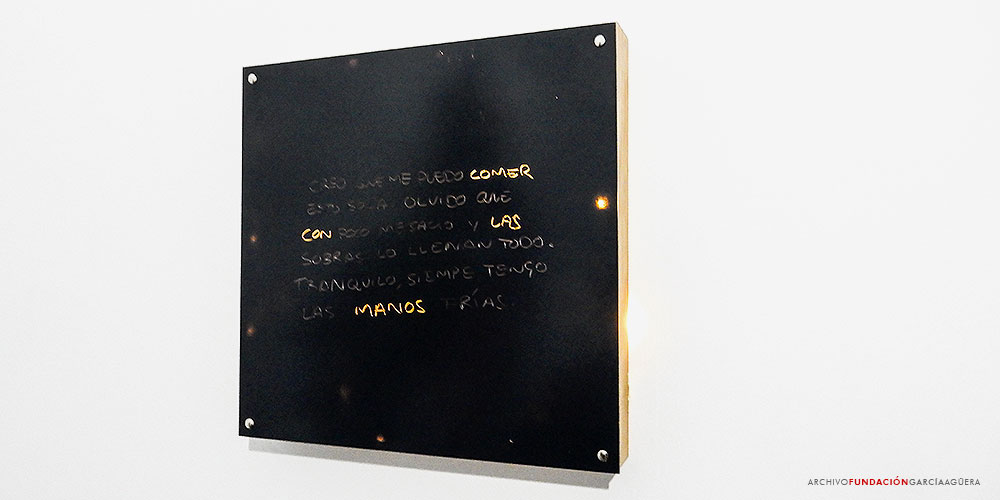 CREO QUE ME PUEDO COMER
ESTO SOLA OLVIDO QUE
CON POCO ME SACIO Y LAS
SOBRAS LO LLENAN TODO.
TRANQUILO, SIEMPRE TENGO
LAS MANOS FRÍAS
ARCHIVOFUNDACIÓNGARCÍAAGÜERA